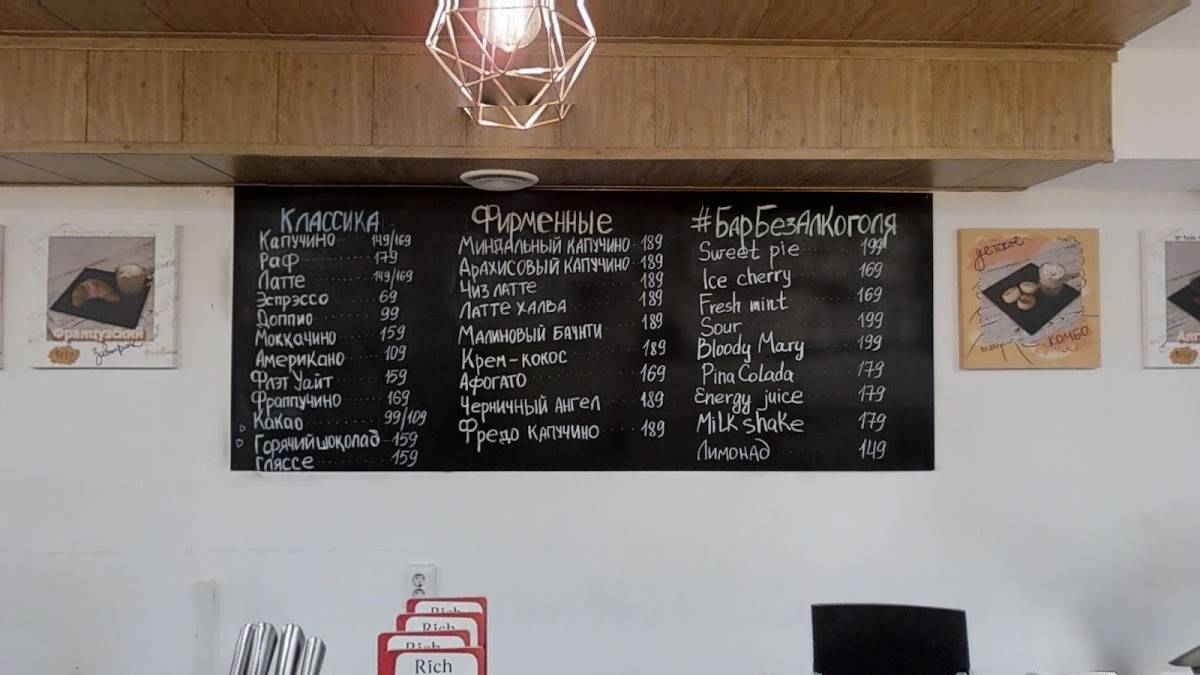 Классика
Капучино 149/169
Раф 179
Латте 149/169
Эспрэссо 69
Доппио 99
Моккачино 159
Американо 109
Флэт Уайт 159
Фраппучино 169
Какао 99/109
Горячий шоколад 159
Гляссе 159
Фирменные
Миндальный капучино 189
Арахисовый капучино 189
Чиз латте 189
Латте халва 189
Малиновый баунти 189
Крем-кокос 189
Афогато 169
Черничный Ангел 189
Фредо капучино 189
#БарБезАлкоголя
Sweet pie 199
Ice cherry 169
Fresh mint 169
Sour 199
Bloody Mary 199
Pina Colada 179
Energy juice 179
Milk shake 179
Лимонад 149
Французский
Завтрак
детское
КОМБО
Rich
Rich
Rich
Rich